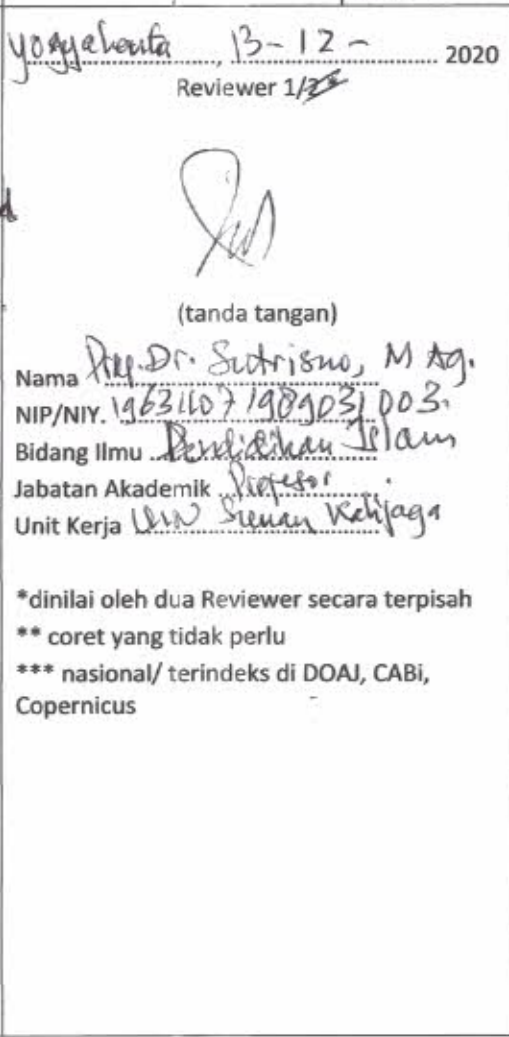 Yogyakarta, 13-12- 2020
Reviewer 1/2
(tanda tangan)
Nama Prof. Dr. Sutrisno, M Ag.
NIP/NIY. 19631107 198903 1 003.
Bidang Ilmu Pendidikan Islam
Jabatan Akademik Profesor
Unit Kerja UIN Sunan Kalijaga
*dinilai oleh dua Reviewer secara terpisah
** coret yang tidak perlu
*** nasional/ terindeks di DOAJ, CABi,
Copernicus